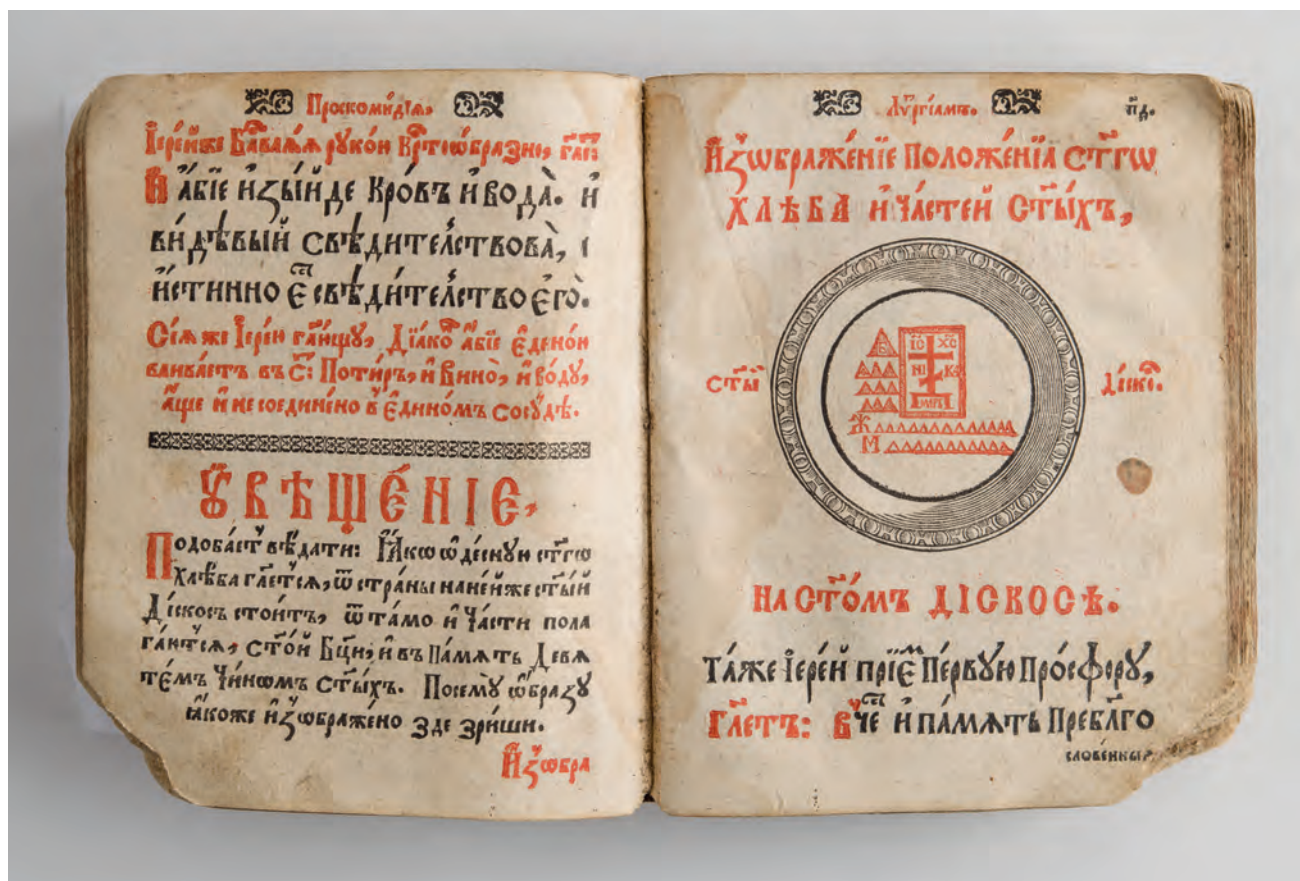 Проскомидїѧ,
Їере́йже Бл҃вѧѧ рꙋкою Крⷭ҇тоѡбразнѡ, гл҃ѧ:
И҆ а҆́бїе и҆зы́йде Кро́въ и҆ вода̀. и҆
ви́дѣвый свѣди́телствова̀,
и҆́стинно є҆́ⷭ҇ свѣди́телство є҆гѡ̀.
Сїѧ же Їере́й гл҃ющꙋ, Дїа́кѡⷩ а҆́бїе є҆ди́ною
влива́етъ въ с҃: Поти́ръ, и҆ Вино̀, и҆ во́дꙋ,
а҆́ще и҆ не соединено̀ в є҆ди́номъ Сосꙋ́дѣ.
Оу҆вѣще́нїе,
Подоба́етъ вѣ́дати: Ꙗ҆́кѡ ѡ҆деснꙋ́ю ст҃гѡ
Хлѣ́ба гл҃етсѧ, ѿ страны̀ на не́йже ст҃ы́й
Дї́скосъ стои́тъ, ѿ та́мо и҆ Ча́сти пола
га́ютсѧ, ст҃о́й Бц҃и, и҆ въ Па́мѧть Девѧ
те́мъ Чи́нѡмъ Ст҃ы́хъ. Посемꙋ̀ ѡ҆́бразꙋ
ꙗ҆́коже и҆зѡбраже́но зде зри́ши.
И҆зѡбра
Лѵⷮргїамъ. п҃д.
И҆зѡбраже́нїе Положе́нїѧ ст҃гѡ
Хлѣ́ба и҆ Ча́стей Ст҃ы́хъ,
ІС ХС
НИ КА
Ж
М
ст҃ы́й дї́скоⷭ.
На ст҃о́мъ дї́скосѣ.
Та́же Їере́й прїе́мъ Пе́рвꙋю Про́сфорꙋ,
Гл҃етъ: В че́ⷭ҇ и҆ па́мѧть Пребл҃го
слове́нныѧ